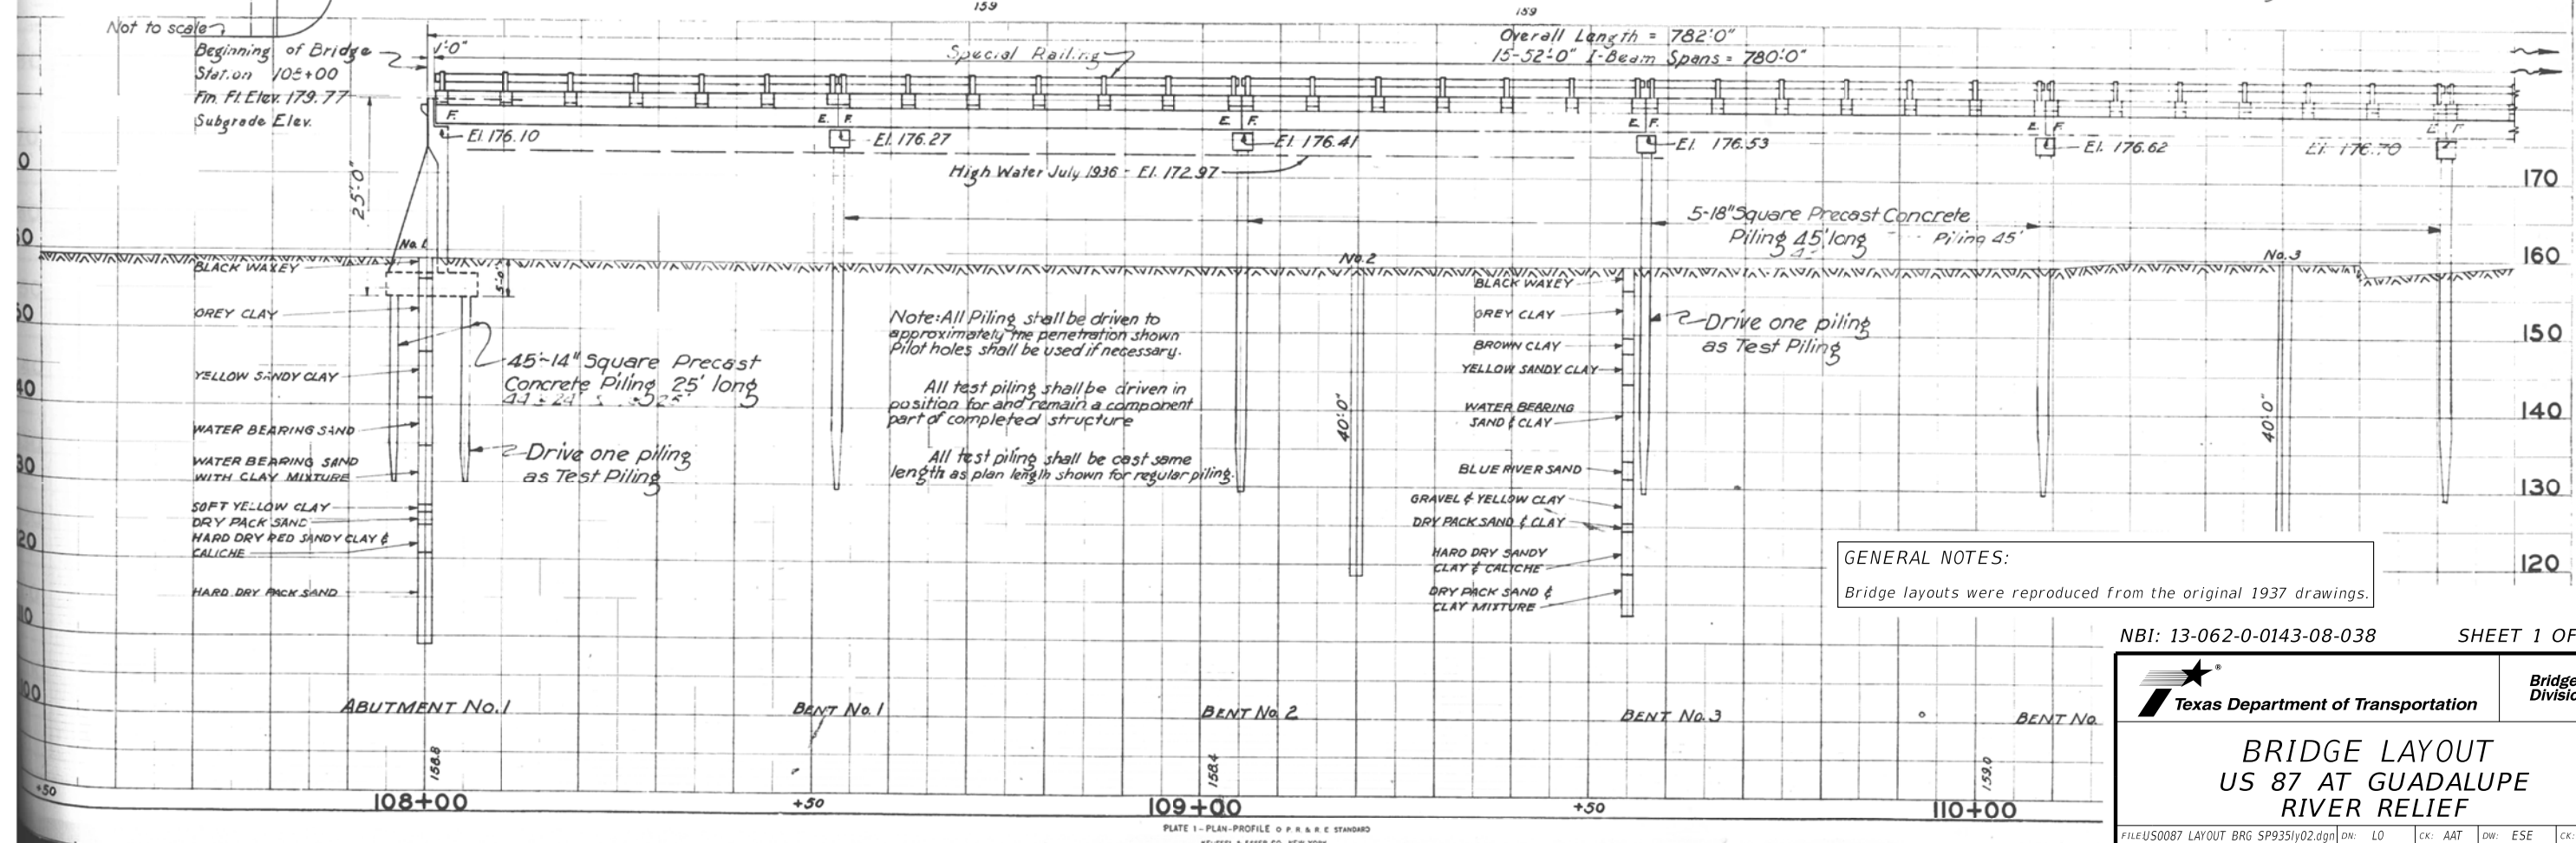 159
159
Not to scale
Beginning of Bridge
Station 108+00
Fin. Fl. Elev. 179.77
Subgrade Elev.
1'-0"
Special Railing
Overall Length = 782'-0"
15-52'-0" I-Beam Spans = 780'-0"
F.
E. F.
E. F.
E. F.
E. F.
E. F.
El. 176.10
El. 176.27
El. 176.41
El. 176.53
El. 176.62
El. 176.70
High Water July 1936 - El. 172.97
25'-0"
170
160
150
140
130
120
5-18" Square Precast Concrete
Piling 45' long
Piling 45'
No. 1
No. 2
No. 3
5'-0"
BLACK WAXEY
GREY CLAY
YELLOW SANDY CLAY
WATER BEARING SAND
WATER BEARING SAND
WITH CLAY MIXTURE
SOFT YELLOW CLAY
DRY PACK SAND
HARD DRY RED SANDY CLAY &
CALICHE
HARD DRY PACK SAND
45-14" Square Precast
Concrete Piling 25' long
Drive one piling
as Test Piling
Note: All Piling shall be driven to
approximately the penetration shown
Pilot holes shall be used if necessary.
All test piling shall be driven in
position for and remain a component
part of completed structure
All test piling shall be cast same
length as plan length shown for regular piling.
40'-0"
BLACK WAXEY
GREY CLAY
BROWN CLAY
YELLOW SANDY CLAY
WATER BEARING
SAND & CLAY
BLUE RIVER SAND
GRAVEL & YELLOW CLAY
DRY PACK SAND & CLAY
HARD DRY SANDY
CLAY & CALICHE
DRY PACK SAND &
CLAY MIXTURE
Drive one piling
as Test Piling
40'-0"
GENERAL NOTES:
Bridge layouts were reproduced from the original 1937 drawings.
NBI: 13-062-0-0143-08-038
SHEET 1 OF
Texas Department of Transportation
Bridge
BRIDGE LAYOUT
US 87 AT GUADALUPE
RIVER RELIEF
FILE US0087 LAYOUT BRG SP935ly02.dgn DN: LO CK: AAT DW: ESE CK:
ABUTMENT No. 1
BENT No. 1
BENT No. 2
BENT No. 3
BENT No.
158.8
158.4
159.0
+50
108+00
+50
109+00
+50
110+00
PLATE 1-PLAN-PROFILE O P R & R E STANDARD